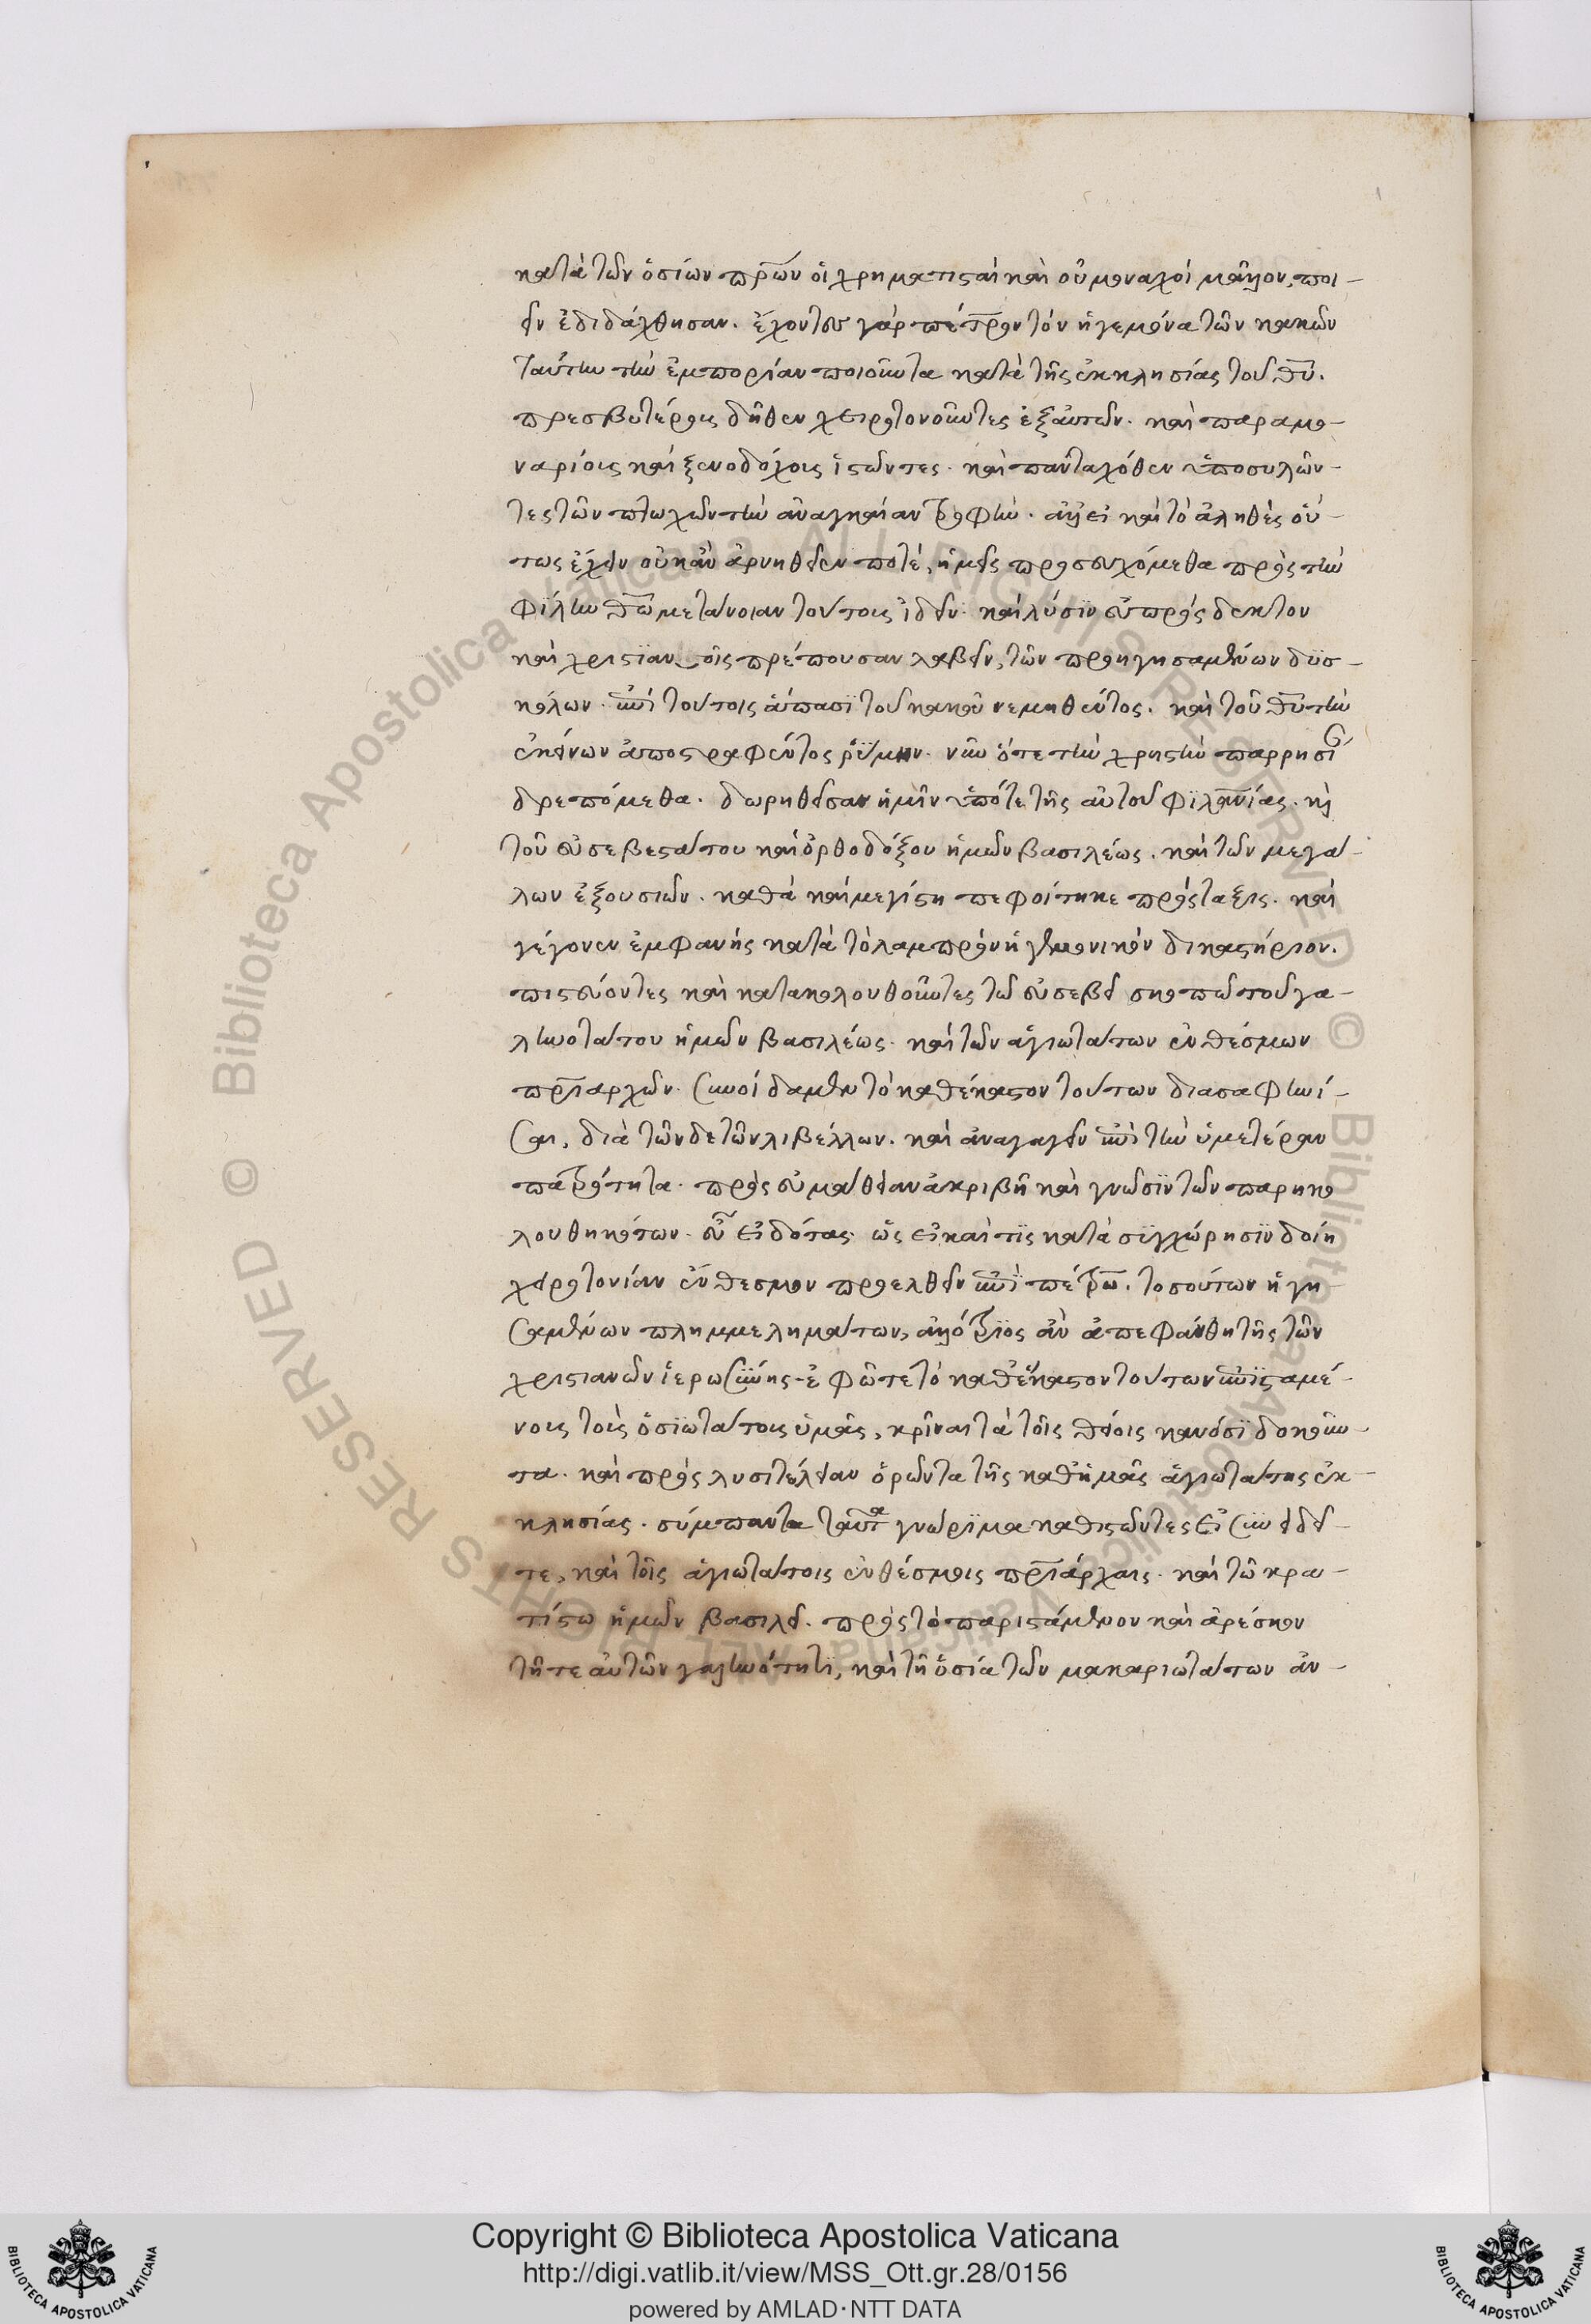 κατὰ τῶν ὁσίων πρ̅ων οἱ χρηματισταὶ καὶ οὐ μοναχοὶ μᾶλλον, ποι-
εῖν ἐδιδάχθησαν. ἔχοντες γὰρ πέτρον τὸν ἡγεμόνα τῶν κακῶν
ταύτην τὴν ἐμπορίαν ποιοῦντα κατὰ τῆς ἐκκλησίας τοῦ θυ̅.
πρεσβυτέρους δῆθεν χειροτονοῦντες ἐξ αὐτῶν. καὶ παραμο-
ναρίοις καὶ ξενοδόχοις ἱστῶντες. καὶ πανταχόθεν ὑποσυλῶν-
τες τῶν πτωχῶν τὴν ἀναγκαίαν τροφήν. ἀλλ' εἰ καὶ τὸ ἀληθὲς οὕ-
τως ἔχειν οὐκ ἂν ἀρνηθεῖεν ποτέ, ἡμεῖς προσευχόμεθα πρὸς τὴν
φίλην θω̅ μετάνοιαν τούτοις ἰδεῖν. καὶ λύσϊν εὐπρόσδεκτον
καὶ χριστϊανοῖς πρέπουσαν λαβεῖν, τῶν προηγησαμένων δϋσ-
κόλων. ἐπὶ τούτοις ἅπασϊ τοῦ κακοῦ νεμηθέντος. καὶ τοῦ θυ̅ τὴν
ἐκείνων ἀποστραφέντος ῥύμην. νῦν ὅτε τὴν χρηστὴν παρρησί
δρεπόμεθα. δωρηθεῖσαν ἡμῖν ὑπό τε τῆς αὐτοῦ φϊλανι̅ας. κὶ
τοῦ εὐσεβεστάτου καὶ ὀρθοδόξου ἡμῶν βασιλέως. καὶ τῶν μεγά-
λων ἐξουσιῶν. καθὰ καὶ μεγίστη πεφοίτηκε πρόσταξις. καὶ
γέγονεν ἐμφανὴς κατὰ τὸ λαμπρὸν ἡγεμονικὸν δικαστήριον.
πιστεύοντες καὶ κατακολουθοῦντες τῶ εὐσεβεῖ σκοπῶ τοῦ γα-
ληνοτάτου ἡμῶν βασιλέως. καὶ τῶν ἁγιωτάτων ἐνθέσμων
πρ̅ιαρχῶν. συνοίδαμεν τὸ καθέκαστον τούτων διασαφηνί-
σαι, διὰ τῶνδε τῶν λιβέλλων. καὶ ἀναγαγεῖν ἐπὶ τὴν ὑμετέραν
πατρότητα. πρὸς εὐμάθειαν ἀκριβῆ καὶ γνῶσϊν τῶν παρηκο
λουθηκότων. εὖ εἰδότας. ὡς εἰ καὶ τϊς κατὰ σϋγχώρησϊν δοίη
χειροτονίαν ἔνθεσμον προελθεῖν ἐπὶ πέτρω. τοσούτων ἡγη
σαμένων πλημμελημάτων, ἀλλότριος ἂν ἀπεφάνθη τῆς τῶν
χριστιανῶν ἱερωσύνης. ἐφῶ τε τὸ καθέκαστον τούτων ἐπισταμέ-
νοις τοῖς ὁσϊωτάτοις ὑμᾶς, κρῖναι τὰ τοῖς θείοις κανόσϊ δοκοῦν-
τα. καὶ πρὸς λυσιτέλειαν ὁρῶντα τῆς καθ' ἡμᾶς ἁγιωτάτης ἐκ-
κλησίας. σύμπαντα ταῦτα γνώρϊμα καθιστῶντες εἰ συνείδει-
τε, καὶ τοῖς ἁγιωτάτοις ἐνθέσμοις πρ̅ιάρχαις. καὶ τῶ κρα-
τίστω ἡμῶν βασιλεῖ. πρὸς τὸ παριστάμενον καὶ ἀρέσκον
τῆ τε αὐτῶν γαληνότητϊ, καὶ τῆ ὁσία τῶν μακαριωτάτων ἀν-
Copyright © Biblioteca Apostolica Vaticana
http://digi.vatlib.it/view/MSS_Ott.gr.28/0156
powered by AMLAD·NTT DATA